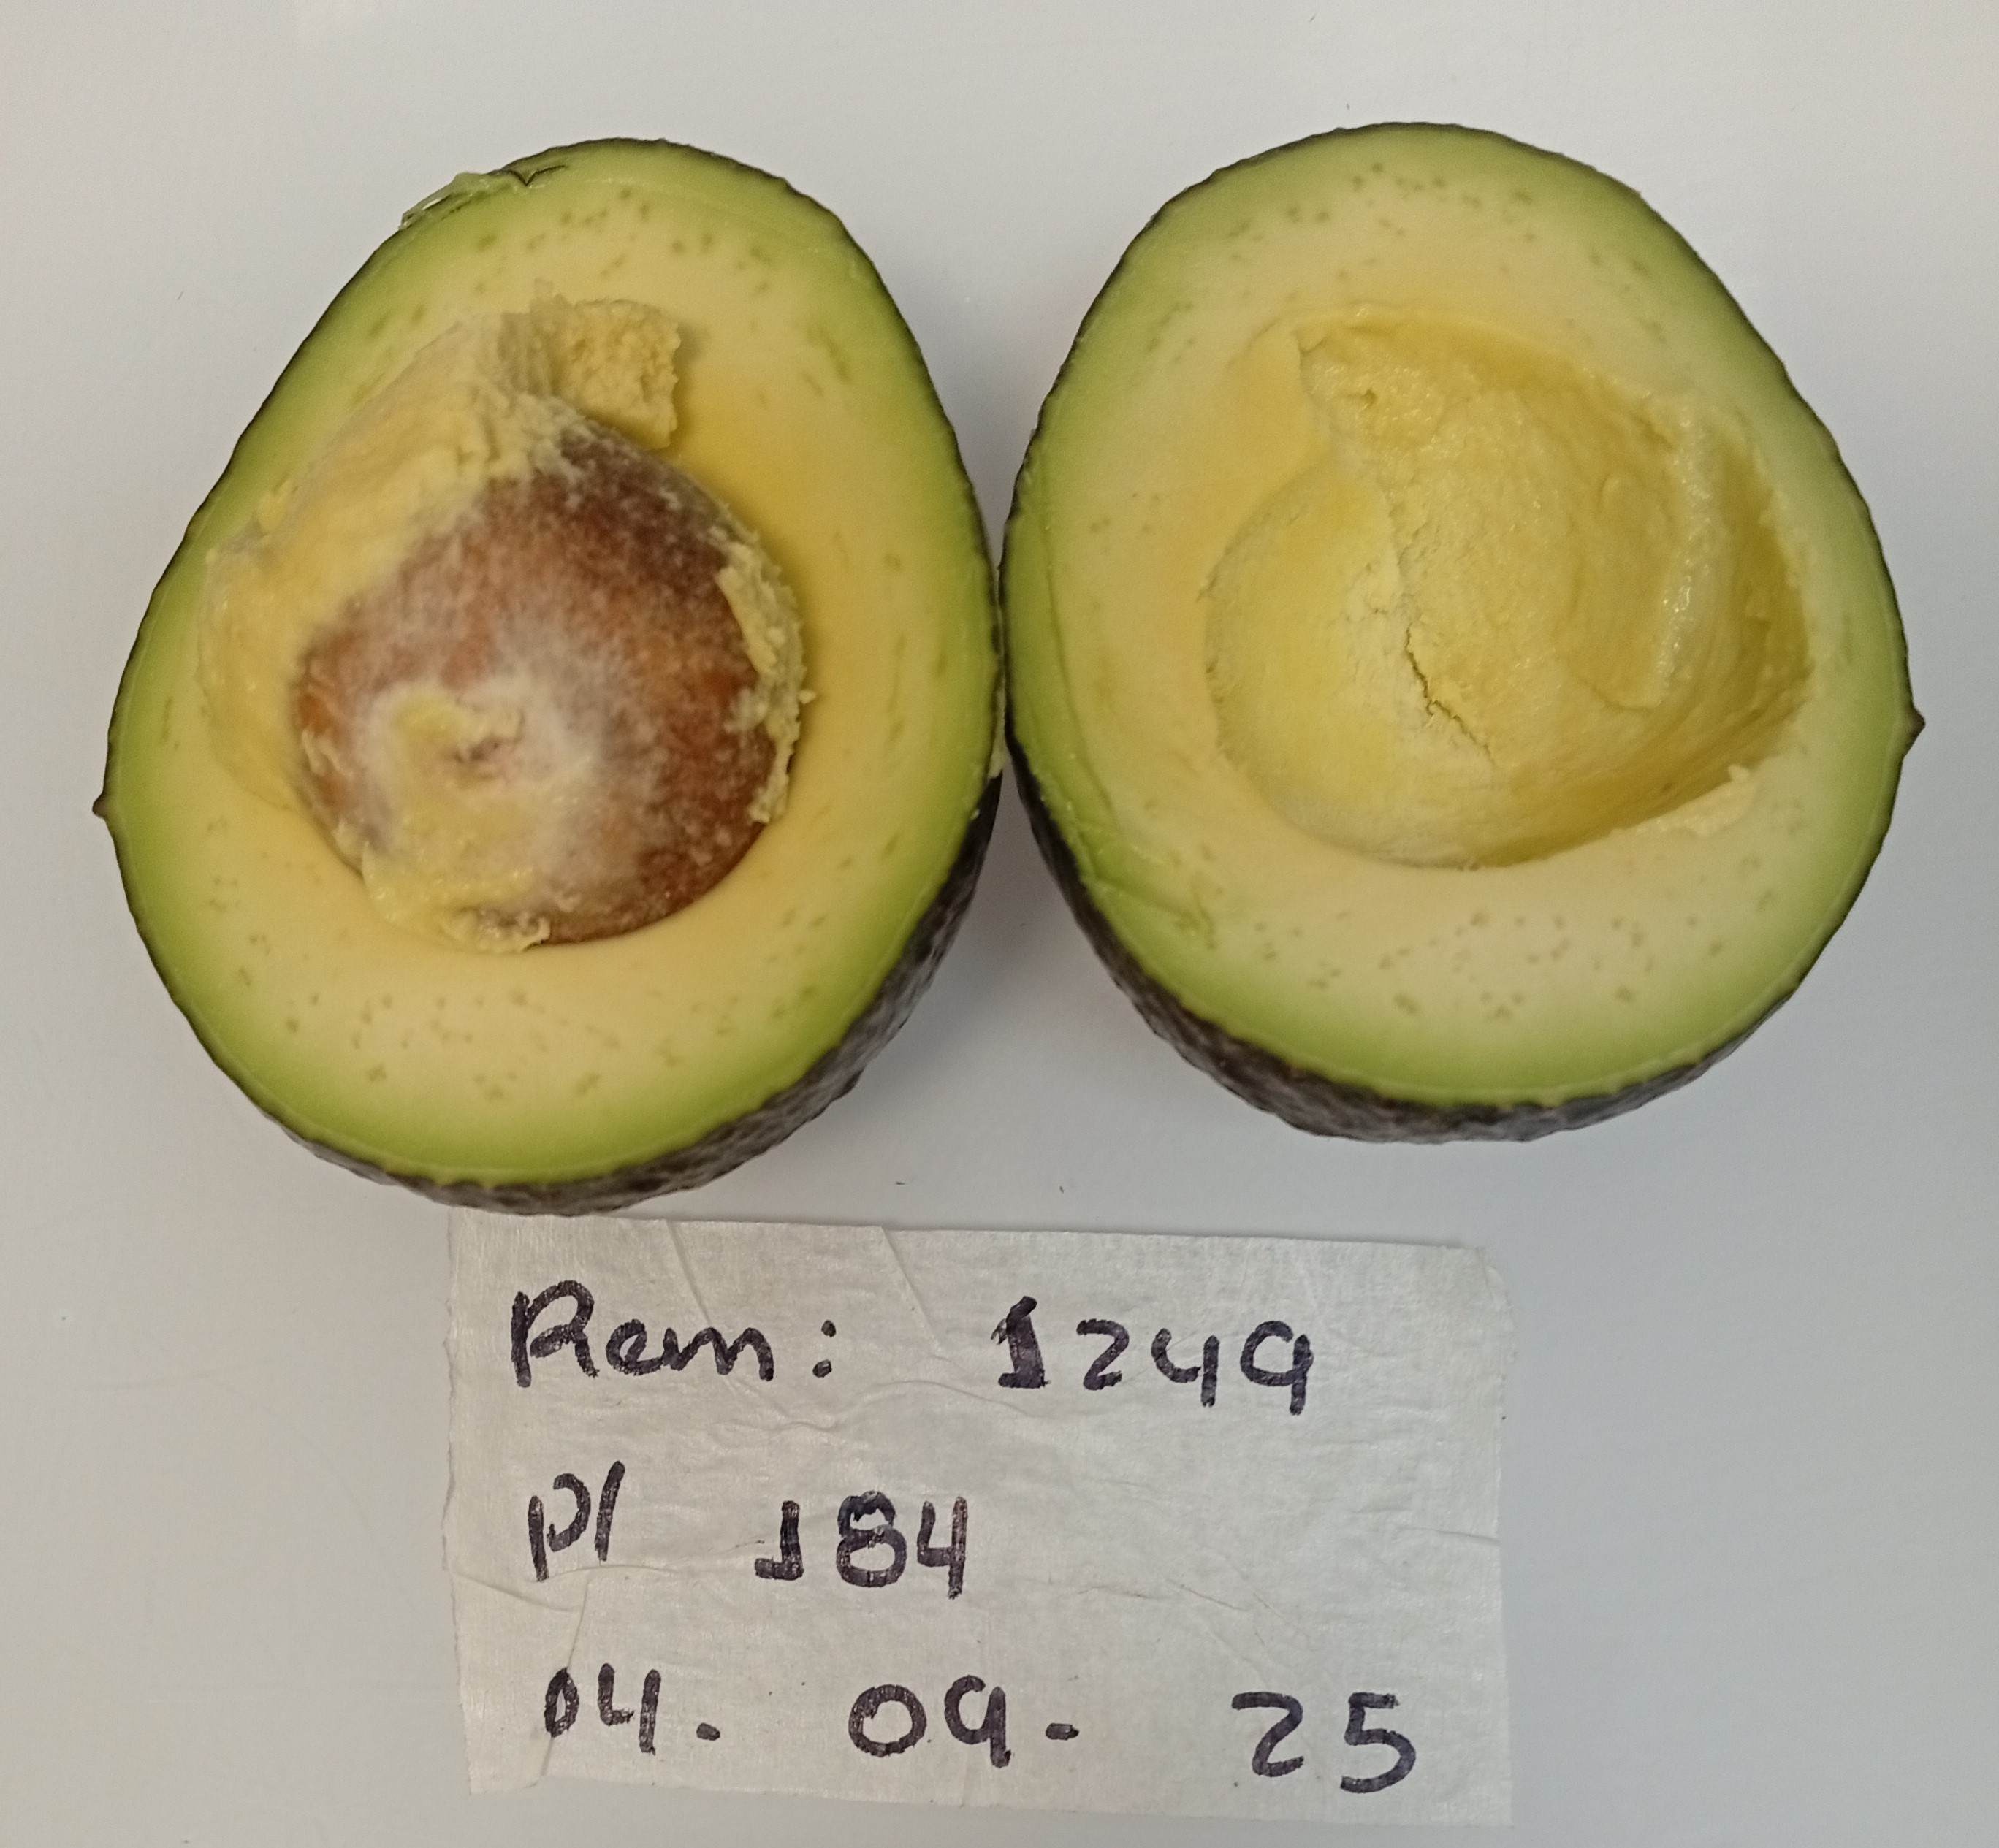 Rem: 1249
Pl 184
04. 09- 25